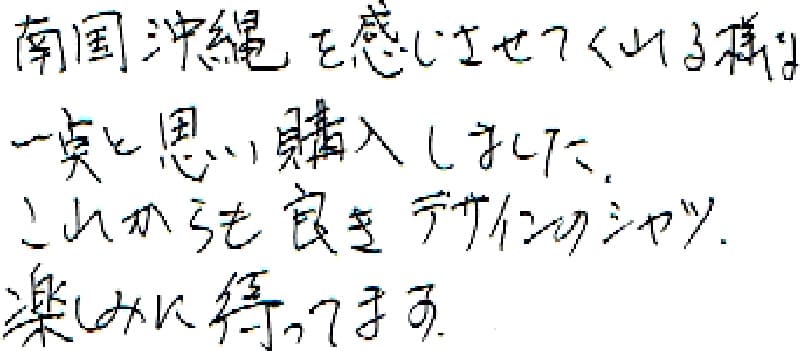 南国沖縄を感じさせてくれる様な
一点と思い購入しました。
これからも良きデザインのシャツ、
楽しみに待ってます。